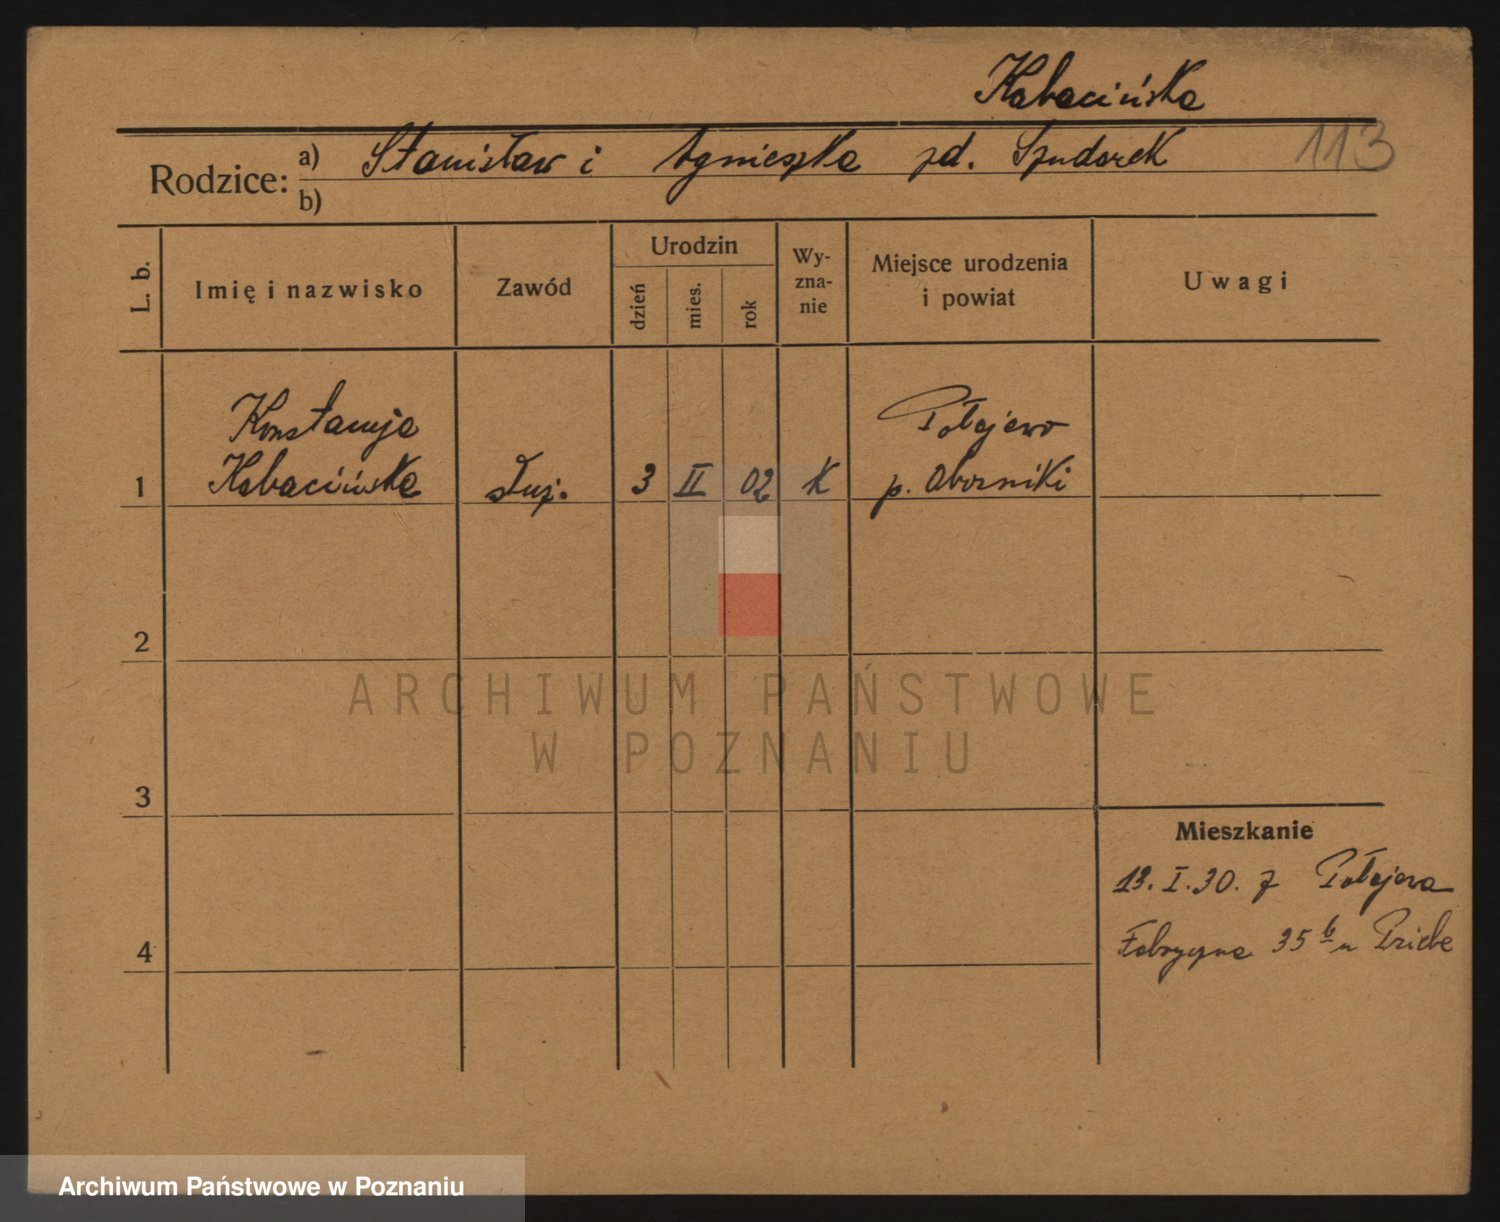 Kabacińska
113
Rodzice: a) Stanisław i Agnieszka zd. Szudarek
b)
L. b.
Imię i nazwisko
Zawód
Urodzin
dzień
mies.
rok
Wy-
zna-
nie
Miejsce urodzenia
i powiat
Uwagi
1
Konstancja
Kabacińska
służ.
3
II
02
K
Połajewo
p. Oborniki
2
3
4
Mieszkanie
13. I. 30. z Połajewa
Fabryczna 35 b u Priebe
ARCHIWUM PAŃSTWOWE
W POZNANIU
Archiwum Państwowe w Poznaniu